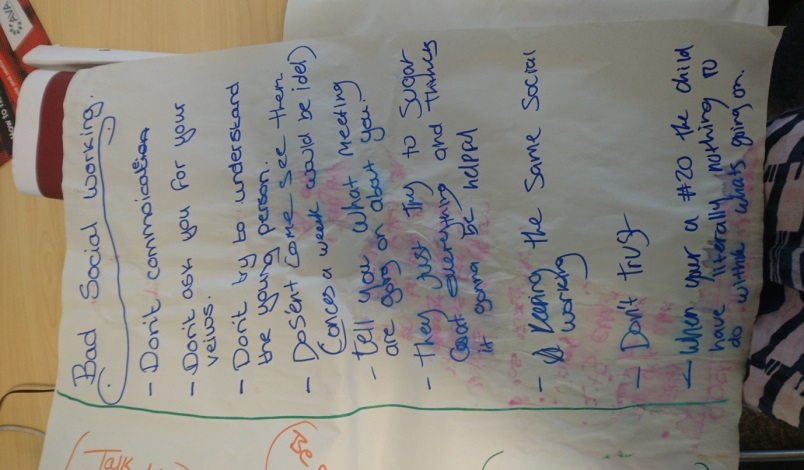 Bad Social Working.
- Don't commoication
- Don't ask you for your
veiws.
- Don't try to understand
the young person.
- Dosent come see them
(onces a week would be idel)
- tell you what meeting
are going on about you.
- they just try to Sugar
Coat everything and things
it gonna be helpful
- Keeping the same social
working
- Don't trust
- When your a #20 the child
have literally nothing to
do within whats going on.
(Talk
(Be
HOW TO